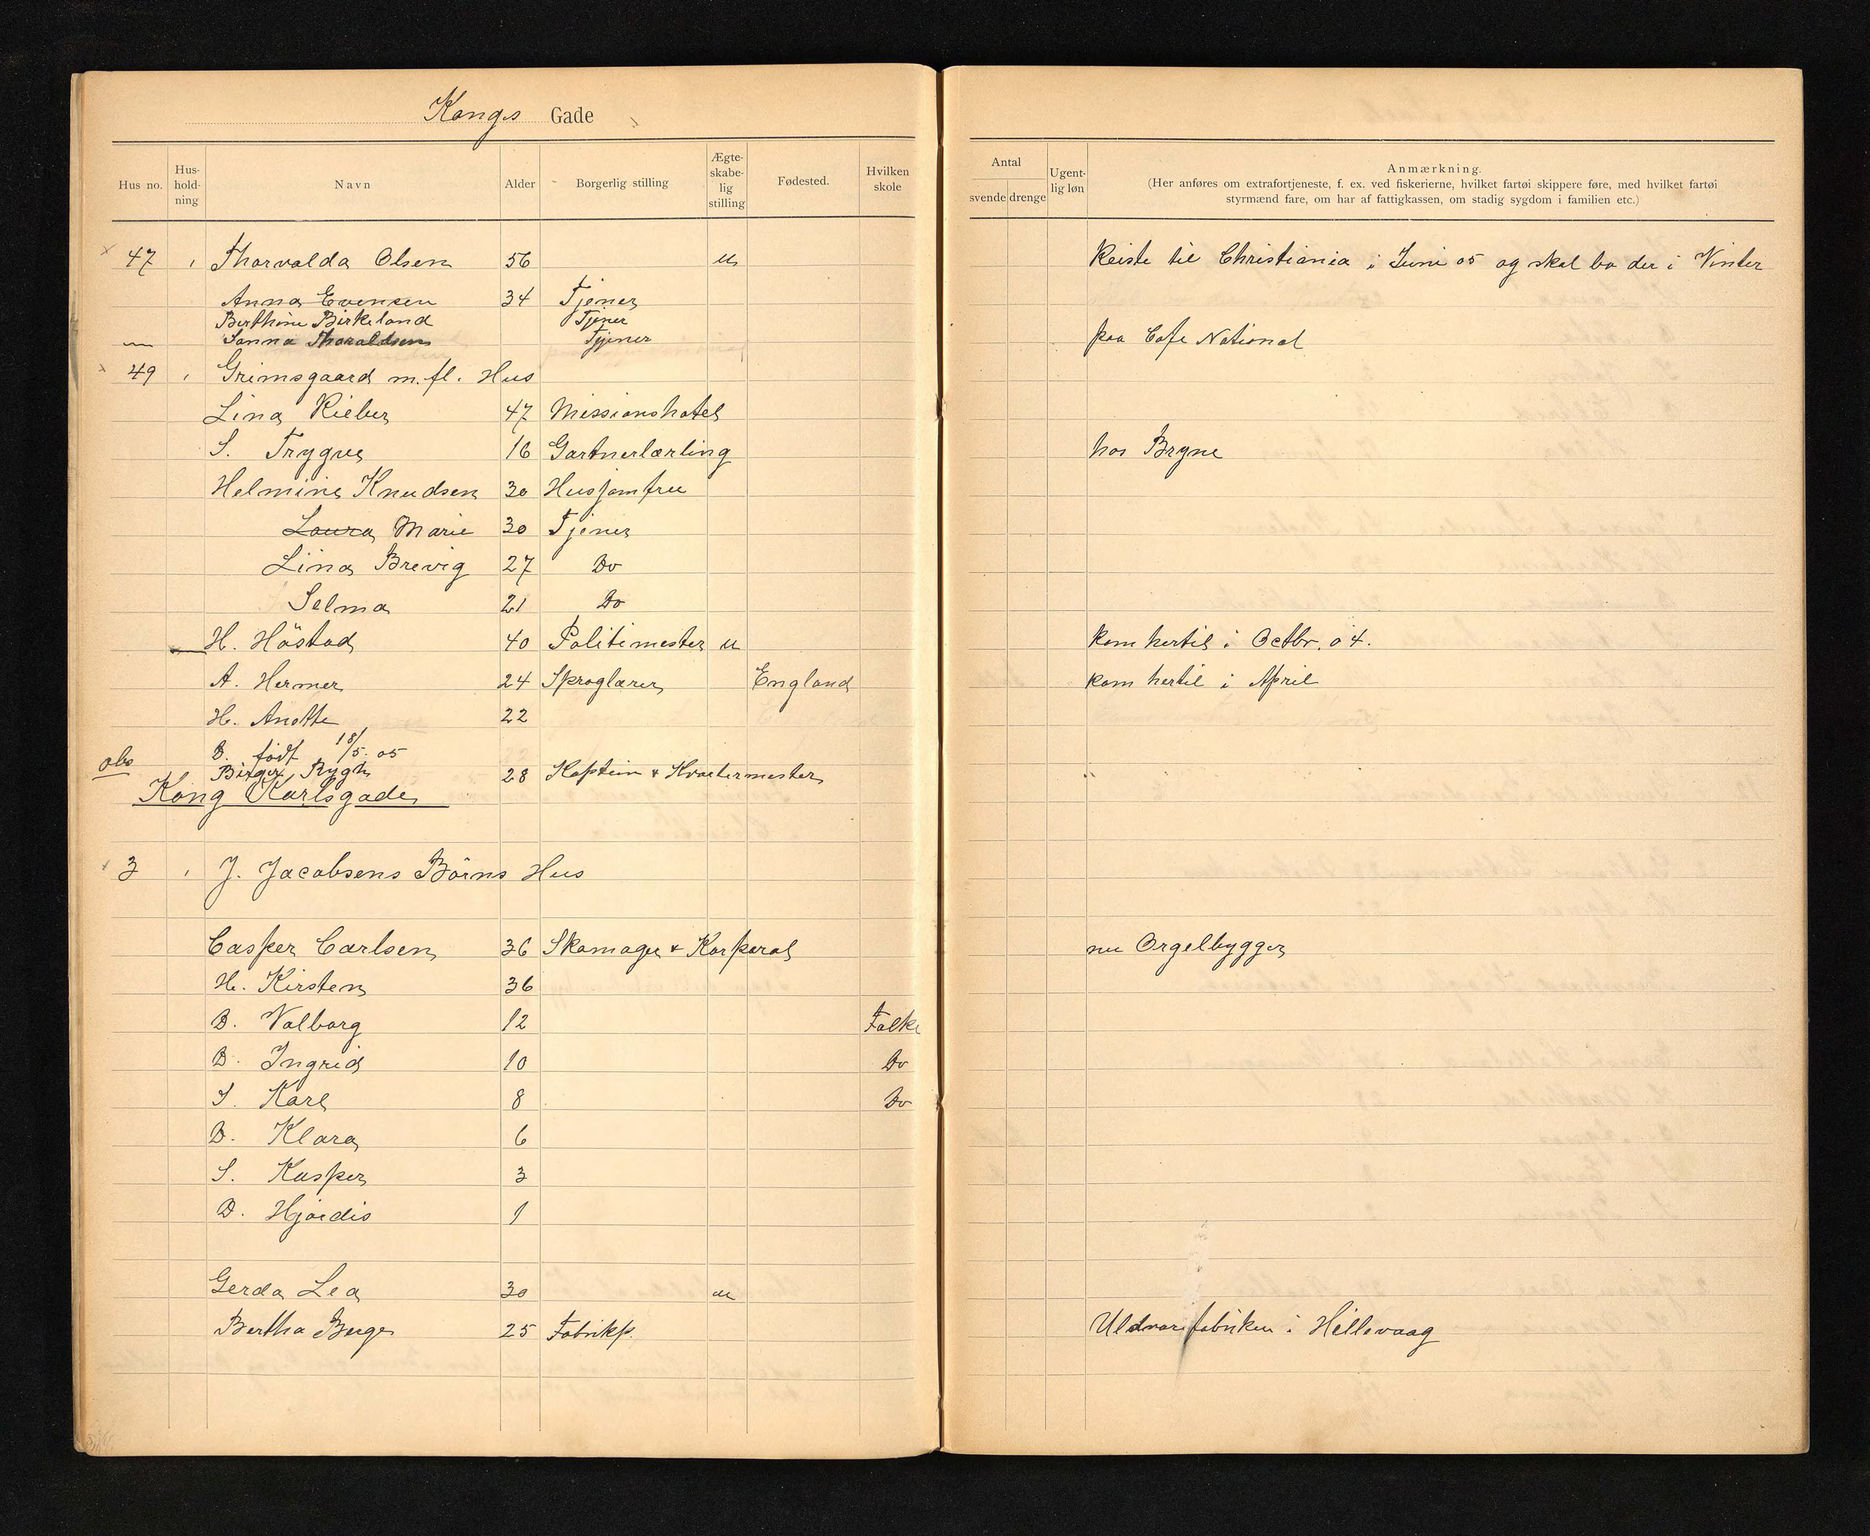 Kongs Gade
Hus no. Hus-hold-ning Navn Alder Borgerlig stilling Ægte-skabe-lig stilling Fødested. Hvilken skole Antal svende drenge Ugent-lig løn Anmærkning.
(Her anføres om extrafortjeneste, f. ex. ved fiskerierne, hvilket fartøi skippere føre, med hvilket fartøi
styrmænd fare, om har af fattigkassen, om stadig sygdom i familien etc.)
47 Thorvalda Olsen 56 u Reiste til Christiania i Juni 05 og skal bo der i Vinter
Anna Evensen 34 Tjener
Berthine Birkeland Tjener
Sanna Thoraldsen Tjener paa Cafe National
49 Grimsgaard m.fl. Hus
Lina Rieber 47 Missionshotel
S. Trygve 16 Gartnerlærling hos Bryne
Helmine Knudsen 30 Husjomfru
Laura Marie 30 Tjener
Lina Brevig 27 Do
Selma 21 Do
H. Höstad 40 Politimester u kom hertil i Octbr. 04.
A. Hermer 24 Sproglærer England kom hertil i April
H. Anette 22
D. født 18/5. 05
obs Birger Rygh 28 Kaptein & Kvartermester
Kong Karlsgade
3 J. Jacobsens Börns Hus
Casper Carlsen 36 Skomager & Korporal nu Orgelbygger
H. Kirsten 36
D. Valborg 12 Folke
D. Ingrid 10 Do
S. Karl 8 Do
D. Klara 6
S. Kasper 3
D. Hjördis 1
Gerda Lea 30 u
Bertha Berge 25 Fabrikp. Uldvarefabriken i Hillevaag